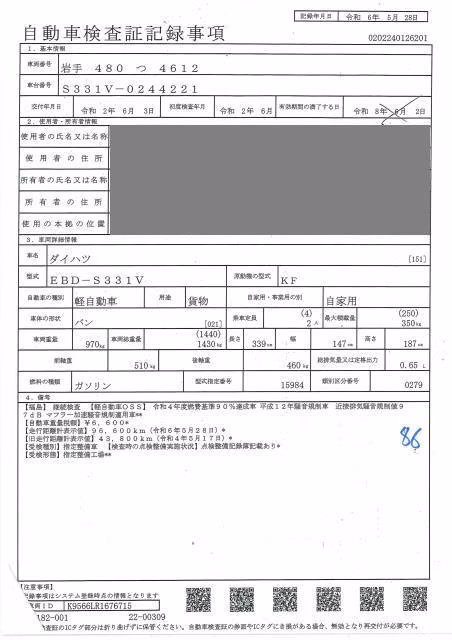 記録年月日 令和 6年 5月 28日
自動車検査証記録事項
0202240126201
1. 基本情報
車両番号 岩手 480 つ 4612
車台番号 S331V-0244221
交付年月日 令和 2年 6月 3日 初度検査年月 令和 2年 6月 有効期間の満了する日 令和 8年 6月 2日
2. 使用者・所有者情報
使用者の氏名又は名称
使用者の住所
所有者の氏名又は名称
所有者の住所
使用の本拠の位置
3. 車両詳細情報
車名 ダイハツ [151]
型式 EBD-S331V 原動機の型式 KF
自動車の種別 軽自動車 用途 貨物 自家用・事業用の別 自家用
車体の形状 バン [021] 乗車定員 (4) 2人 最大積載量 (250) 350kg
車両重量 970kg 車両総重量 (1440) 1430kg 長さ 339cm 幅 147cm 高さ 187cm
前軸重 510kg 後軸重 460kg 総排気量又は定格出力 0.65 L
燃料の種類 ガソリン 型式指定番号 15984 類別区分番号 0279
4. 備考
【福島】 継続検査 【軽自動車OSS】 令和4年度燃費基準90%達成車 平成12年騒音規制車 近接排気騒音規制値9
7dB マフラー加速騒音規制適用車**
【自動車重量税額】¥6,600*
【走行距離計表示値】96,600km(令和6年5月28日)*
【旧走行距離計表示値】43,800km(令和4年5月17日)*
【受検種別】指定整備車 【検査時の点検整備実施状況】点検整備記録簿記載あり*
【受検形態】指定整備工場**
86
【注意事項】
記録事項はシステム登録時点の情報となります
車両ID K9566LR1676715
182-001 22-00309
検査証のICタグ部分は折り曲げずに保管ください。自動車検査証の券面やICタグにき損がある場合、無効となり再交付が必要です。